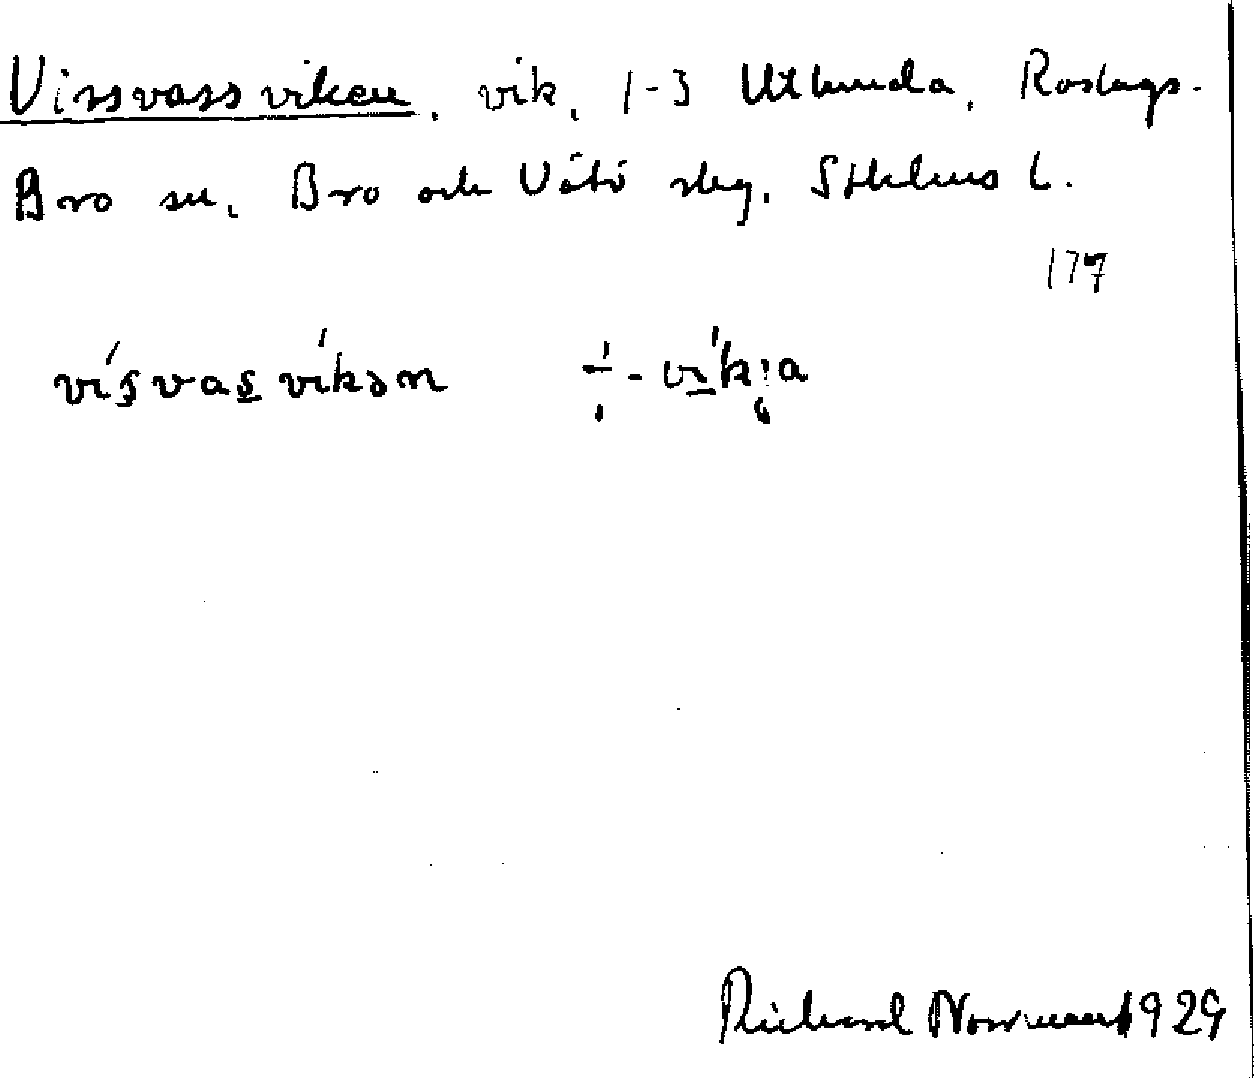 Vissvassviken, vik, 1-3 Utlunda, Roslags-
Bro sn, Bro och Vätö skg, Sthlms l.
177
vísvas víkən ÷ - vík;a
Richard Norrman 1929